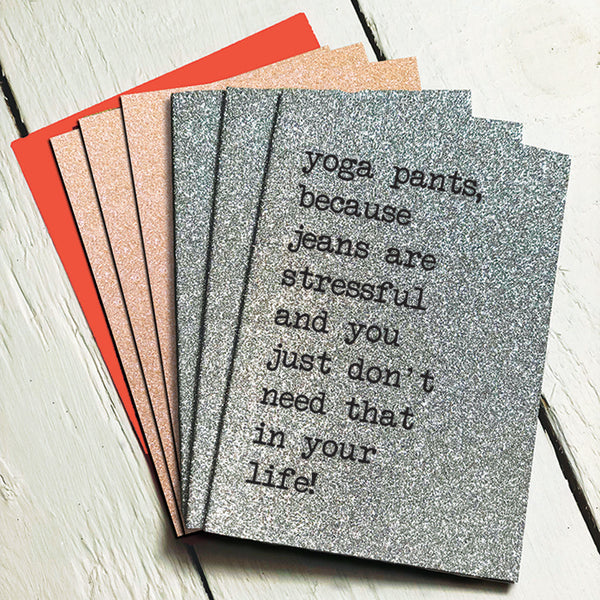 yoga pants,
because
jeans are
stressful
and you
just don't
need that
in your
life!